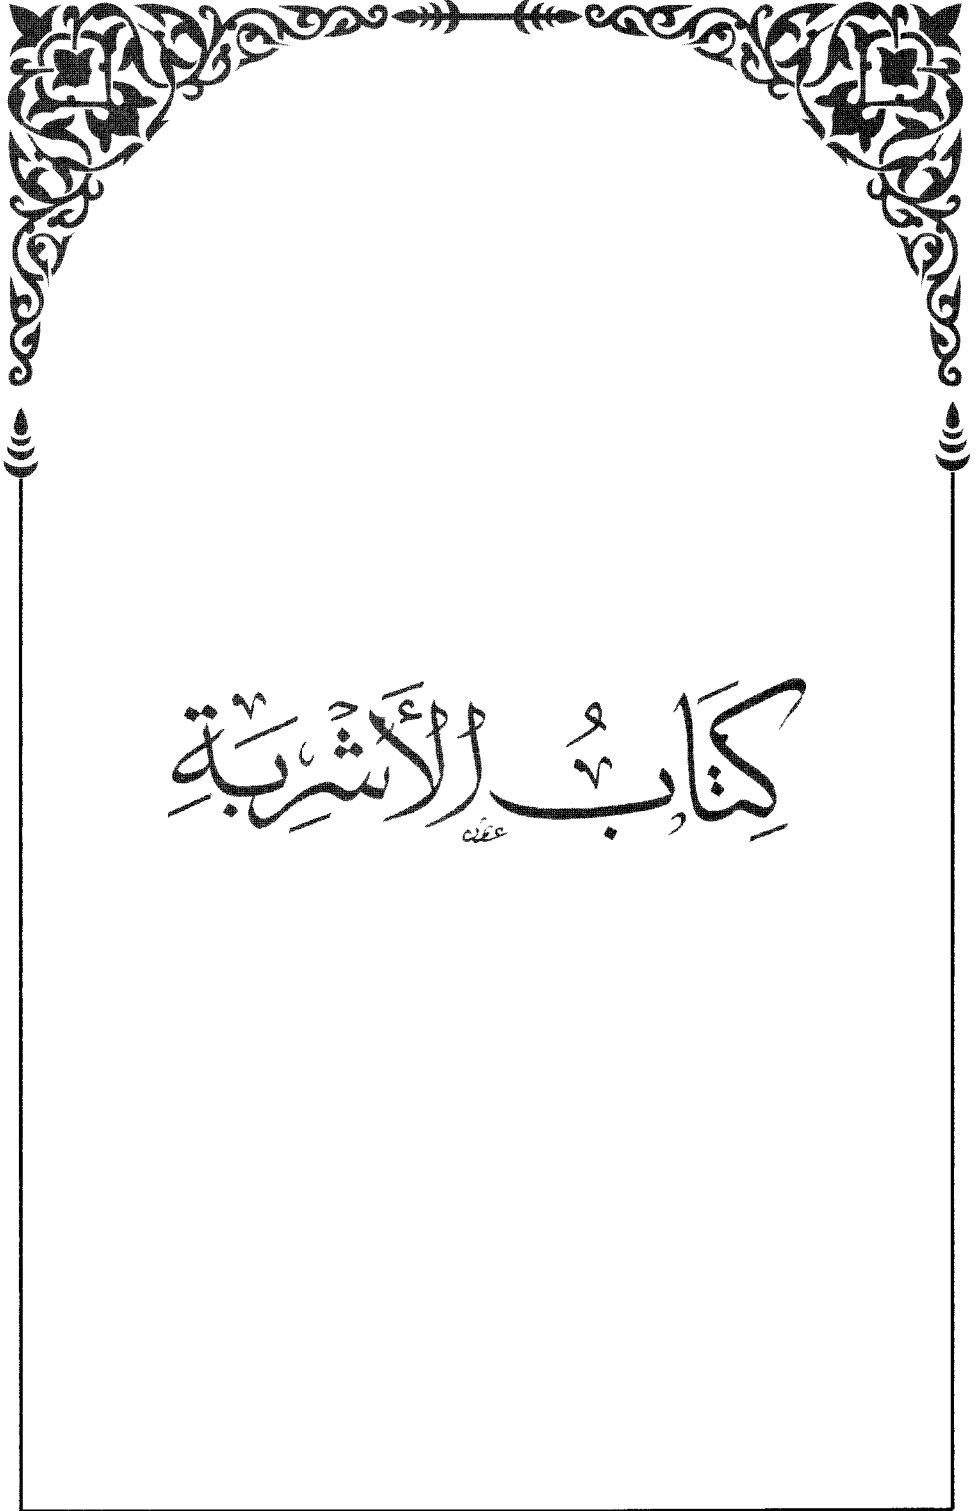 كِتَابُ الأَشْرِبَةِ